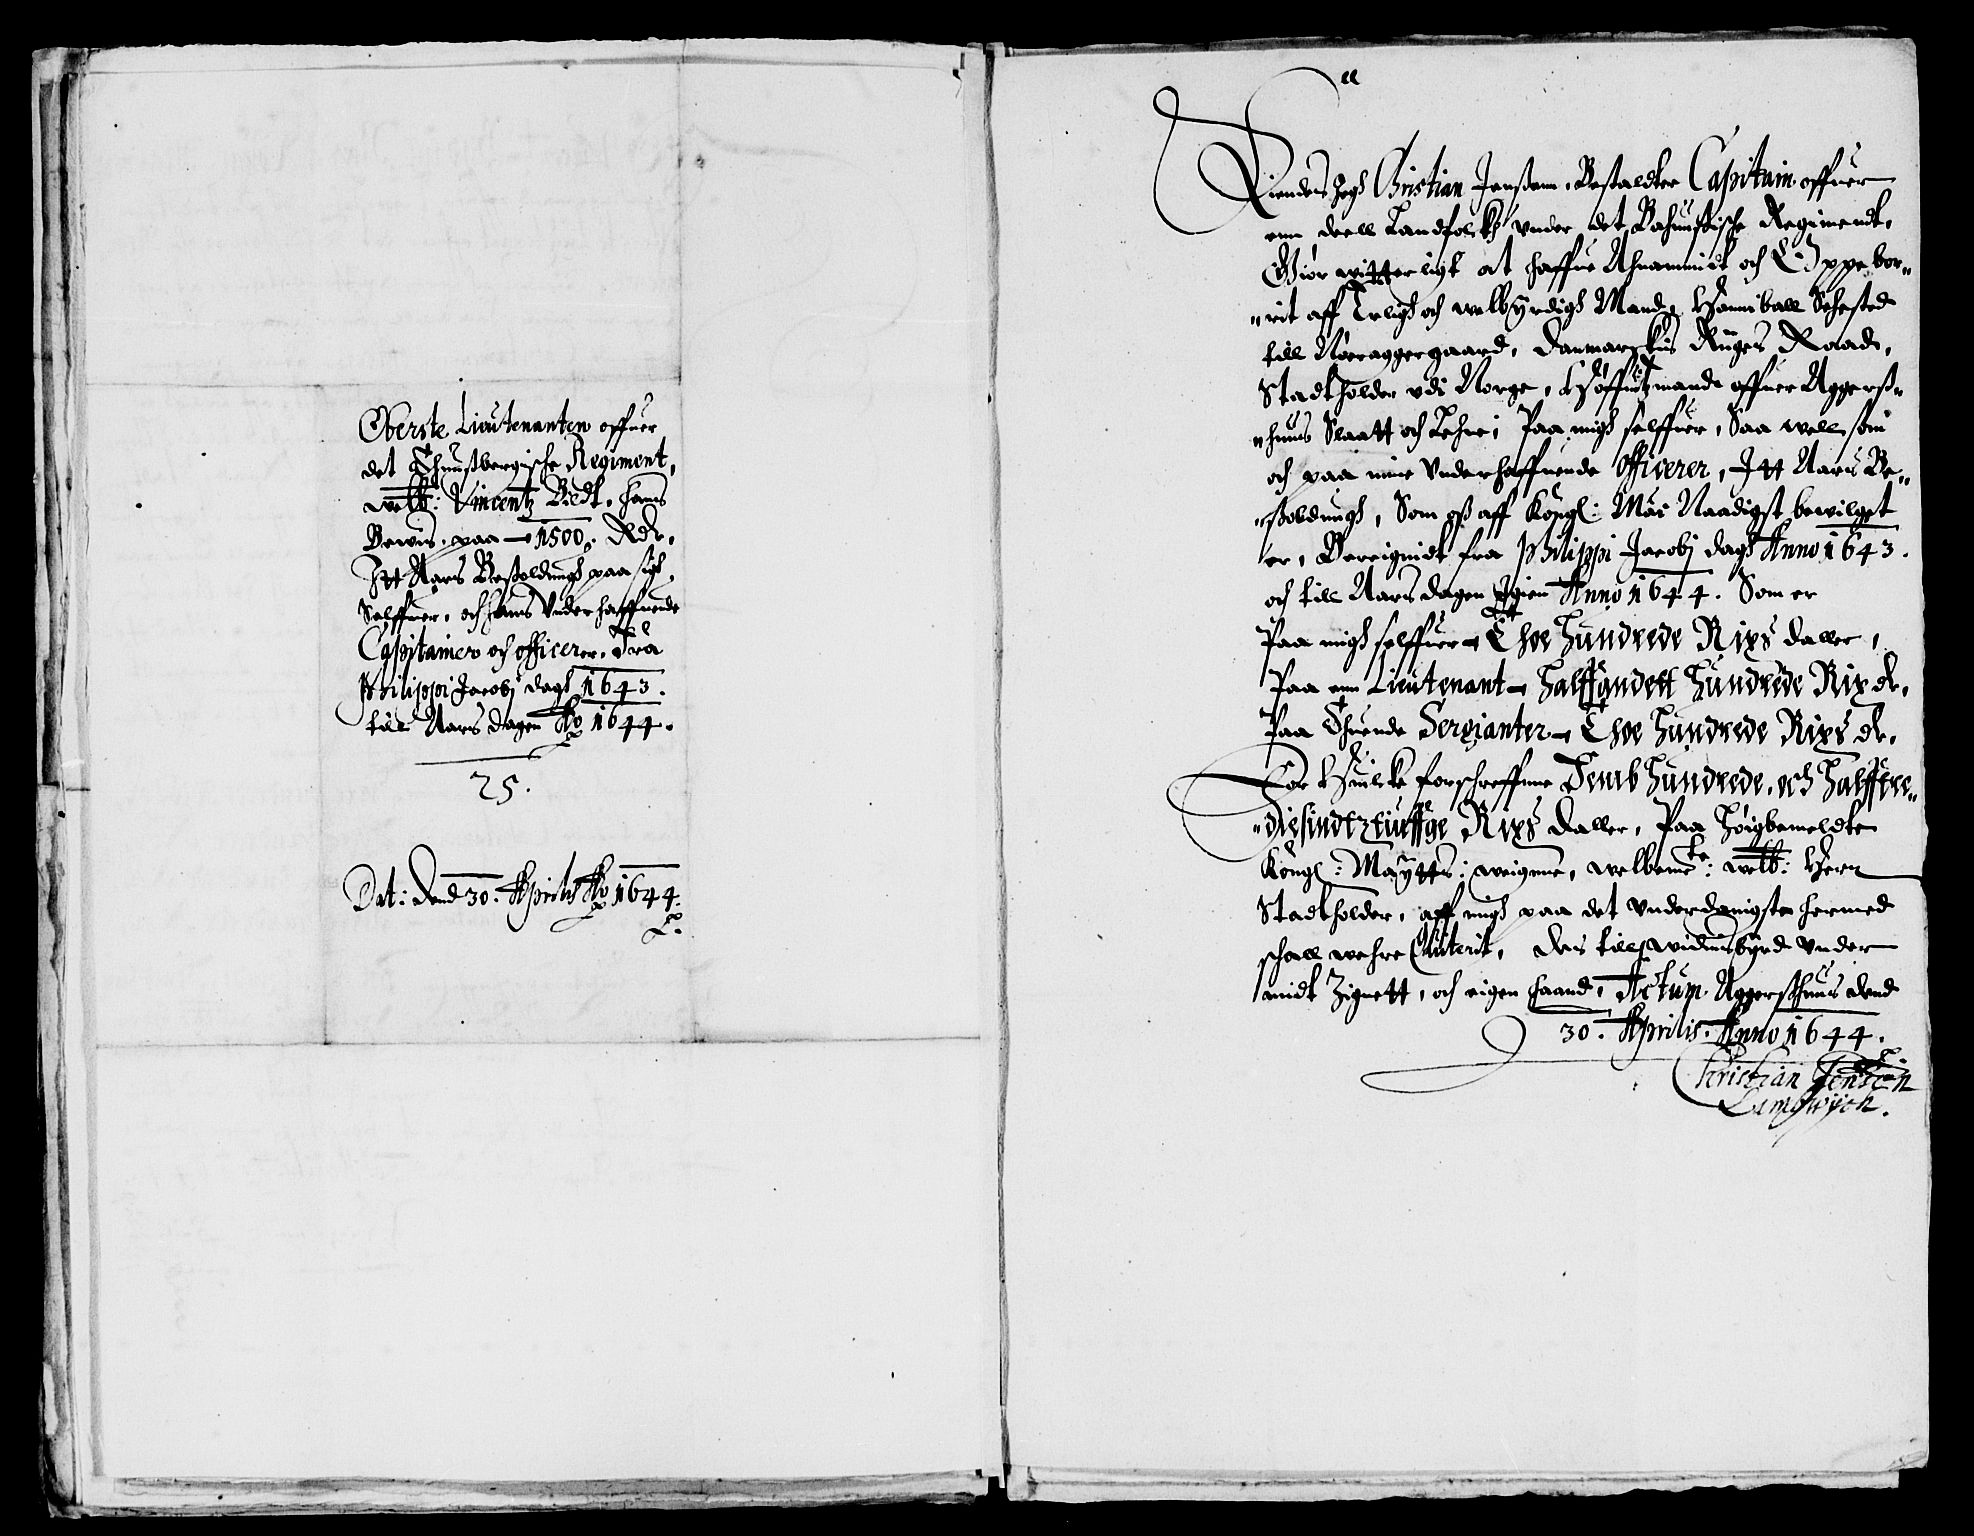 Oberste Lieutenanten offuer
det Thunßbergische Regiment,
welb: Vincentz Bildt, hans
Bewis, paa 1500 Rdr.
Itt Aars Besoldung paa sig
Selffuer, och hans Underhaffuende
Capitainer och officerer. Fra
Philippi Jacobj dag 1643.
till Aars dagen Ao 1644.
25.
Dat: Dend 30. Aprilis Ao 1644.
Kiendes Jeg Christian Jenßenn, Bestaldter Capitain offuer
enn deell Landfolck under det Bahusische Regimendt,
Giør witterligt at haffue Anammidt och Oppebor-
rit aff Erlig och welbyrdig Mand, Hanniball Sehested
till Nøeraggergaard, Danmarckis Riiges Raad,
Stadtholder udi Norge, Høffuitzmand offuer Aggerß-
huus Slaatt och Lehn; Paa mig selffuer, Saa well som
och paa mine Underhaffuende Officerer, Itt Aars Be-
soldung, Som oß aff Kongl: Maj: Naadigst bewilget
er, Bereignidt fra Philippi Jacobj dag Anno 1643.
och till Aars dagen Igien Anno 1644. Som er
Paa mig selffuer Thoe Hundrede Rixs daller,
Paa enn Lieutenant Halffandett Hundrede Rix dr.
Paa Thuende Sergianter Thoe Hundrede Rixs dr.
For Huilcke forschreffne Femb Hundrede, och Halfftre-
diesindtztiuffge Rixs Daller, Paa Høigbemeldte
Kongl: Maytts: weigne, welbemte: welb: Herr
Stadtholder, aff mig paa det Underdanigste hermed
schall wehre Quiterit, Des till widnisbyrd Under
midt Zignett, och eigen haand, Actum Aggerßhuus dend
30. Aprilis. Anno 1644.
Christian Jensen